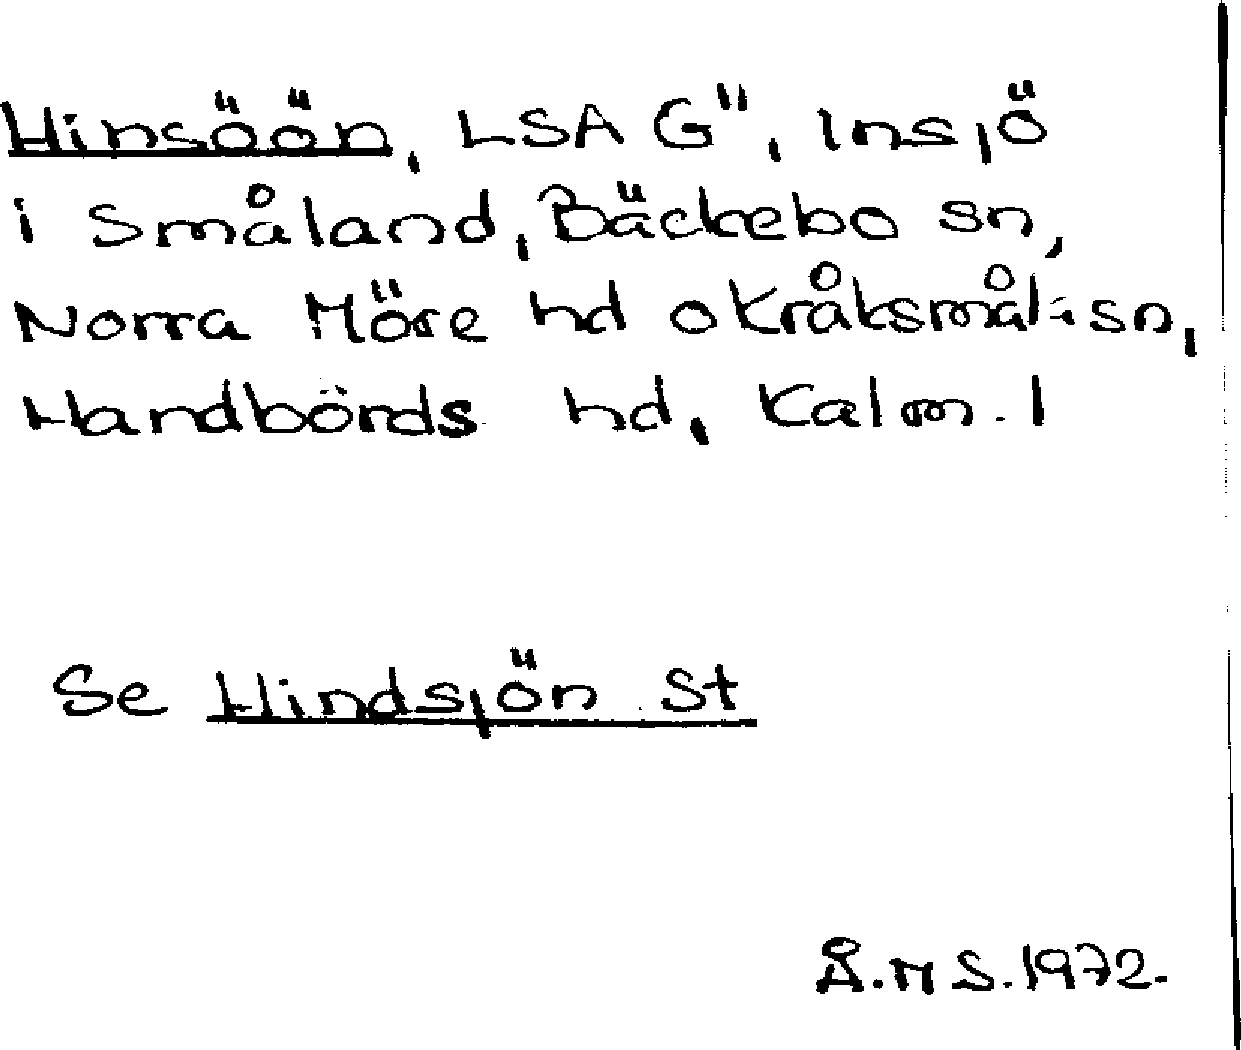 Hinsöön, LSA G", Insjö
i Småland, Bäckebo sn,
Norra Möre hd o Kråksmåla sn,
Handbörds hd, Kalm. l
Se Hindsjön St
Å.M S. 1972.